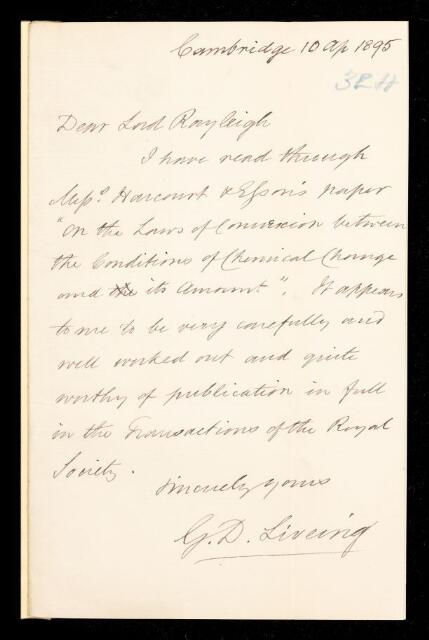 Cambridge 10 Ap 1895
Dear Lord Rayleigh
I have read through
Messrs Harcourt & Esson's paper
"On the Laws of Connexion between
the Conditions of Chemical Change
and the its Amount". It appears
to me to be very carefully and
well worked out and quite
worthy of publication in full
in the Transactions of the Royal
Society.
Sincerely yours
G. D. Liveing